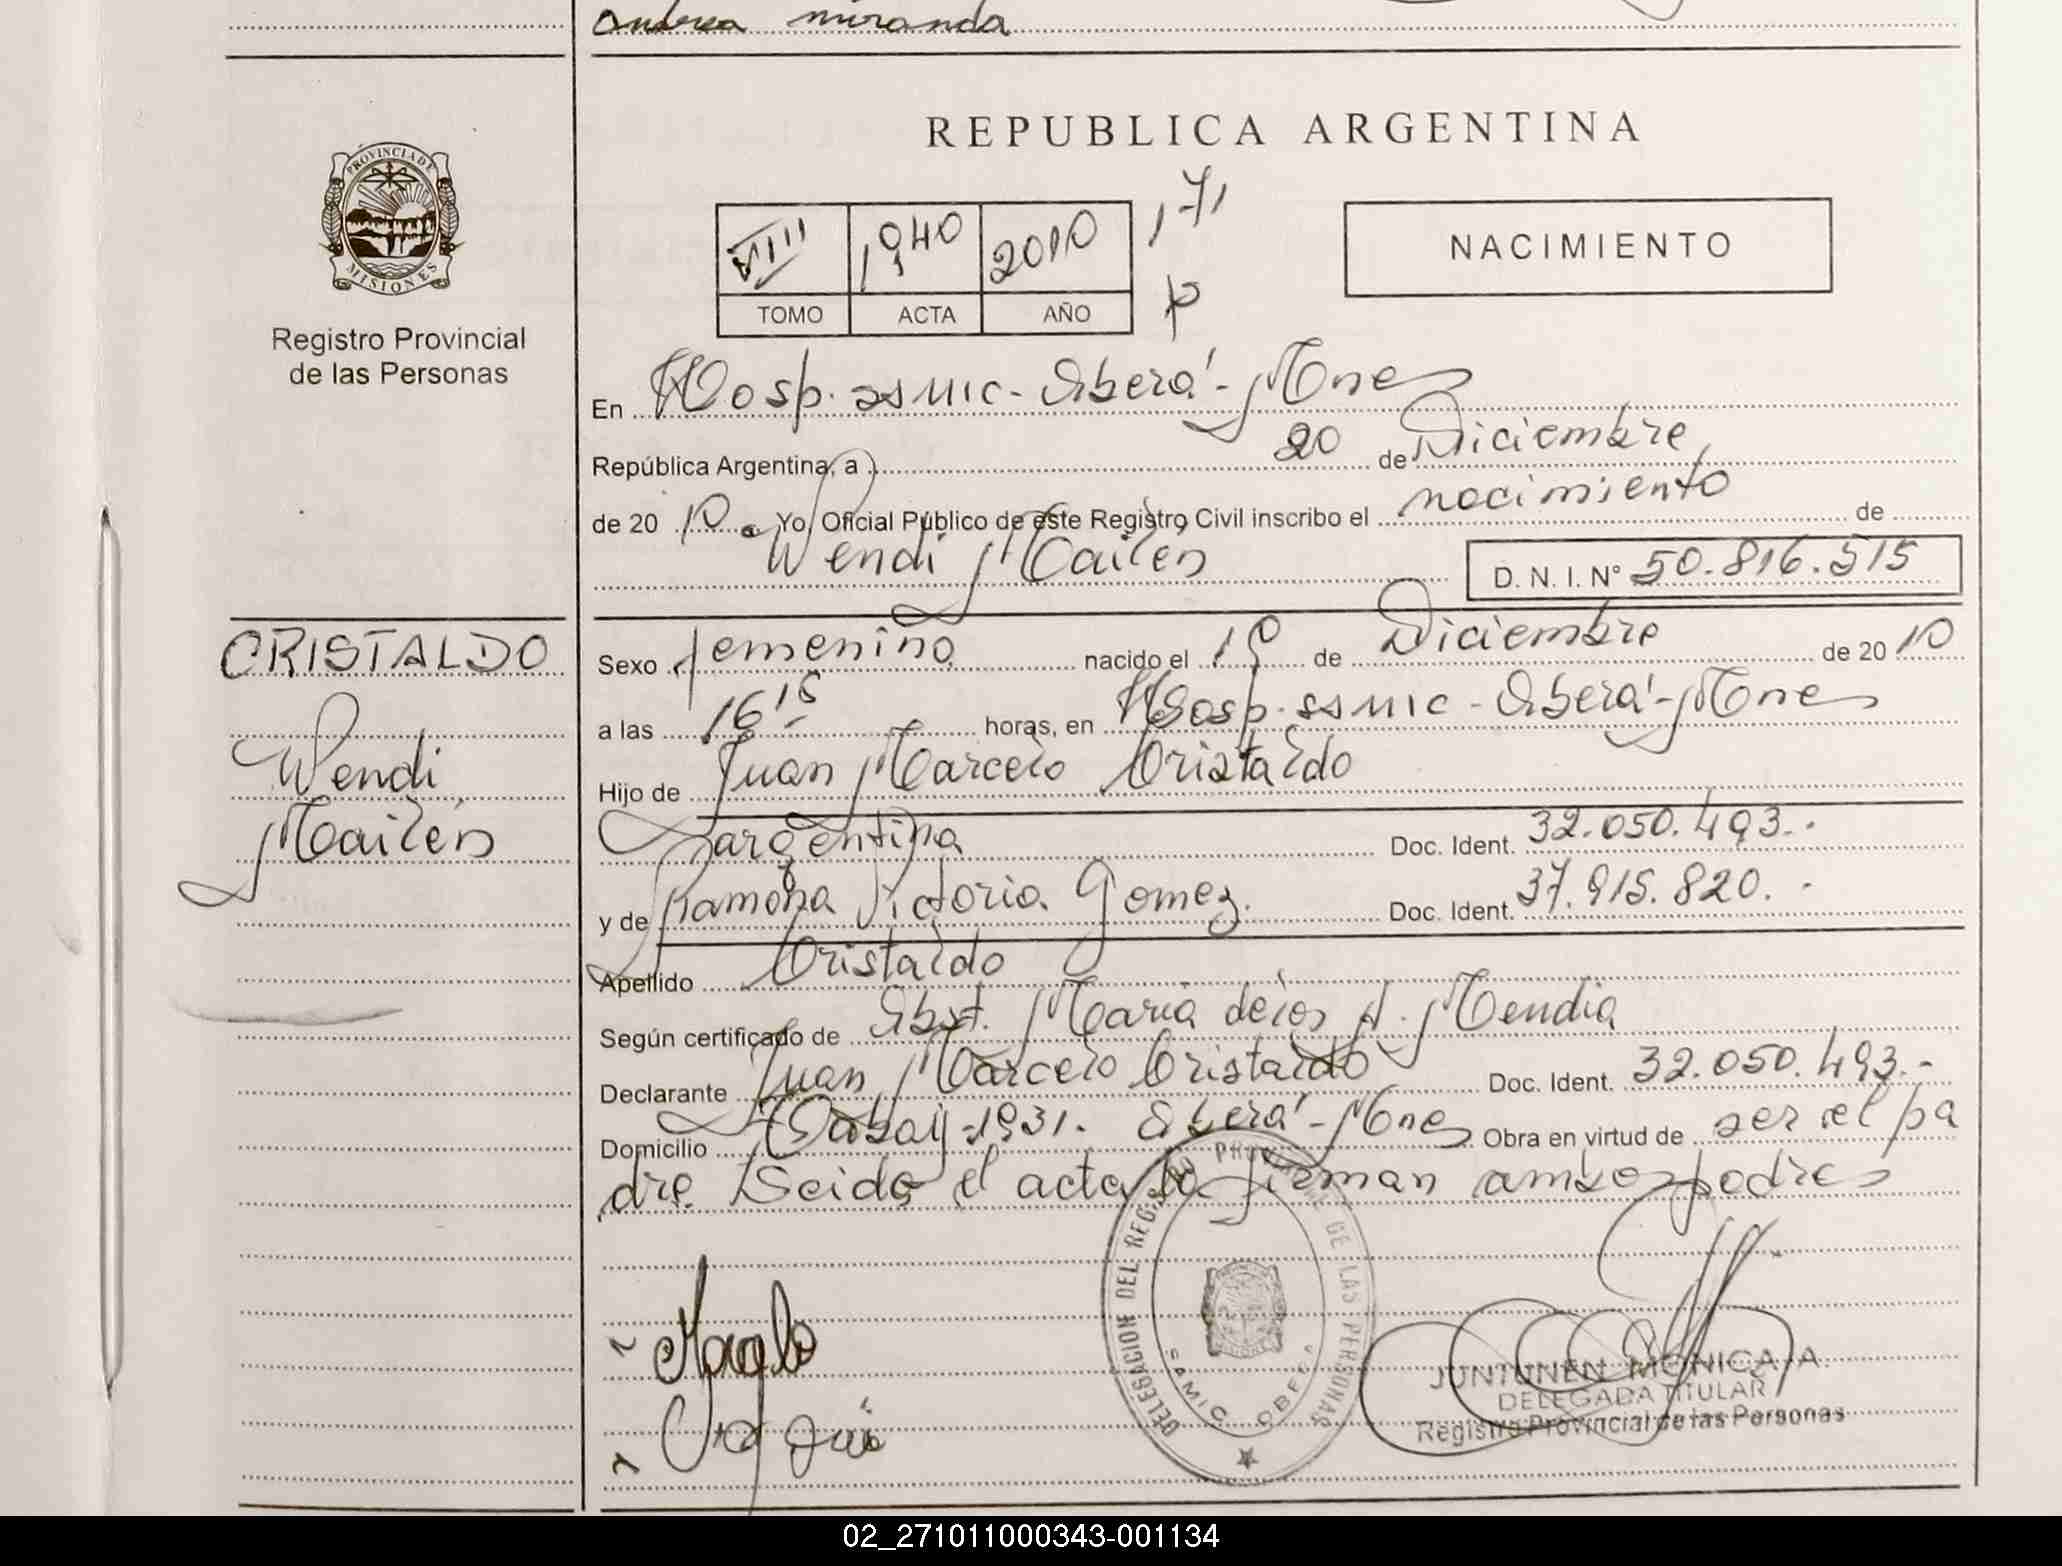 Andrea miranda
PROVINCIA DE
MISIONES
Registro Provincial
de las Personas
REPUBLICA ARGENTINA
VIII 1940 2010 171
TOMO ACTA AÑO
NACIMIENTO
En Hosp. ssmic - Oberá - Mnes
República Argentina, a 20 de Diciembre
de 20 10. Yo, Oficial Público de este Registro Civil inscribo el nacimiento de
Wendi Mailén
D. N. I. Nº 50.816.515
CRISTALDO
Wendi
Mailén
Sexo femenino nacido el 19 de Diciembre de 20 10
a las 16 15 horas, en Hosp. ssmic - Oberá - Mnes
Hijo de Juan Marcelo Cristaldo
argentina Doc. Ident. 32.050.493.-
y de Ramona Victoria Gomez. Doc. Ident. 37.915.820.-
Apellido Cristaldo
Según certificado de Obst. Maria de los A. Mendia
Declarante Juan Marcelo Cristaldo Doc. Ident. 32.050.493.-
Domicilio 1931. Oberá - Mnes Obra en virtud de ser el pa
dre. Leida el acta la firman ambos padres
DELEGACION DEL REGISTRO PROVINCIAL DE LAS PERSONAS
OBERA
JUNTUNEN MONICA A.
DELEGADA TITULAR
Registro Provincial de las Personas
02_271011000343-001134